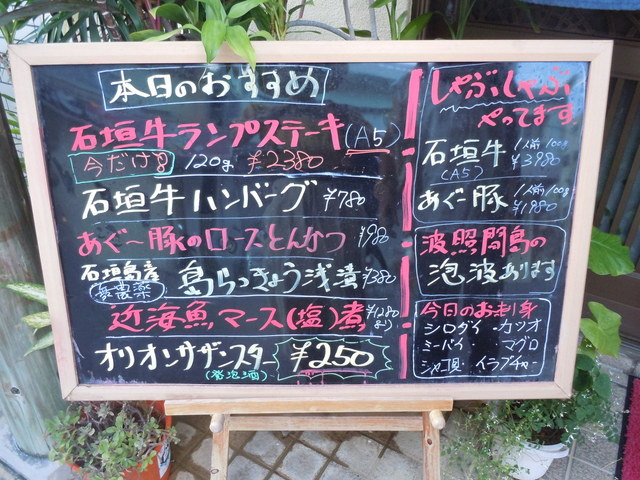 本日のおすすめ
石垣牛ランプステーキ(A5)
今だけ 120g ¥2380
石垣牛ハンバーグ ¥780
あぐー豚のロースとんかつ ¥980
石垣島産
無農薬
島らっきょう浅漬 ¥380
近海魚マース(塩)煮 ¥1280より
オリオンサザンスター ¥250
(発泡酒)
しゃぶしゃぶ
やってます
石垣牛 1人前 100g
(A5) ¥3980
あぐー豚 1人前 100g
¥1980
波照間島の
泡波あります
今日のお刺身
シロダイ・カツオ
ミーバイ・マグロ
シャコ貝・イラブチャー